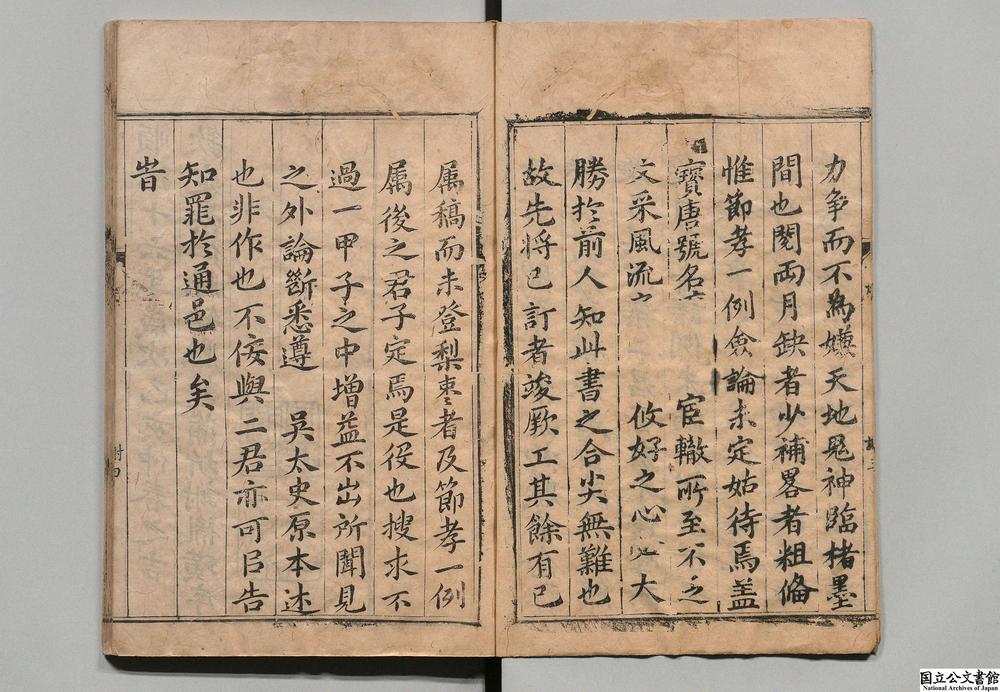 力争而不為嫌天地鬼神臨楮墨
間也閱兩月缺者少補畧者粗俻
惟節孝一例僉論未定姑待焉盖
寳唐號名 宦轍所至不乏
文采風流 攸好之心 大
勝於前人知此書之合尖無難也
故先将已訂者竣厥工其餘有已
属稿而未登梨枣者及節孝一例
属後之君子定焉是役也搜求不
過一甲子之中增益不出所聞見
之外論斷悉遵 吳太史原本述
也非作也不佞與二君亦可㠯告
知罪於通邑也矣
旹
国立公文書館
National Archives of Japan